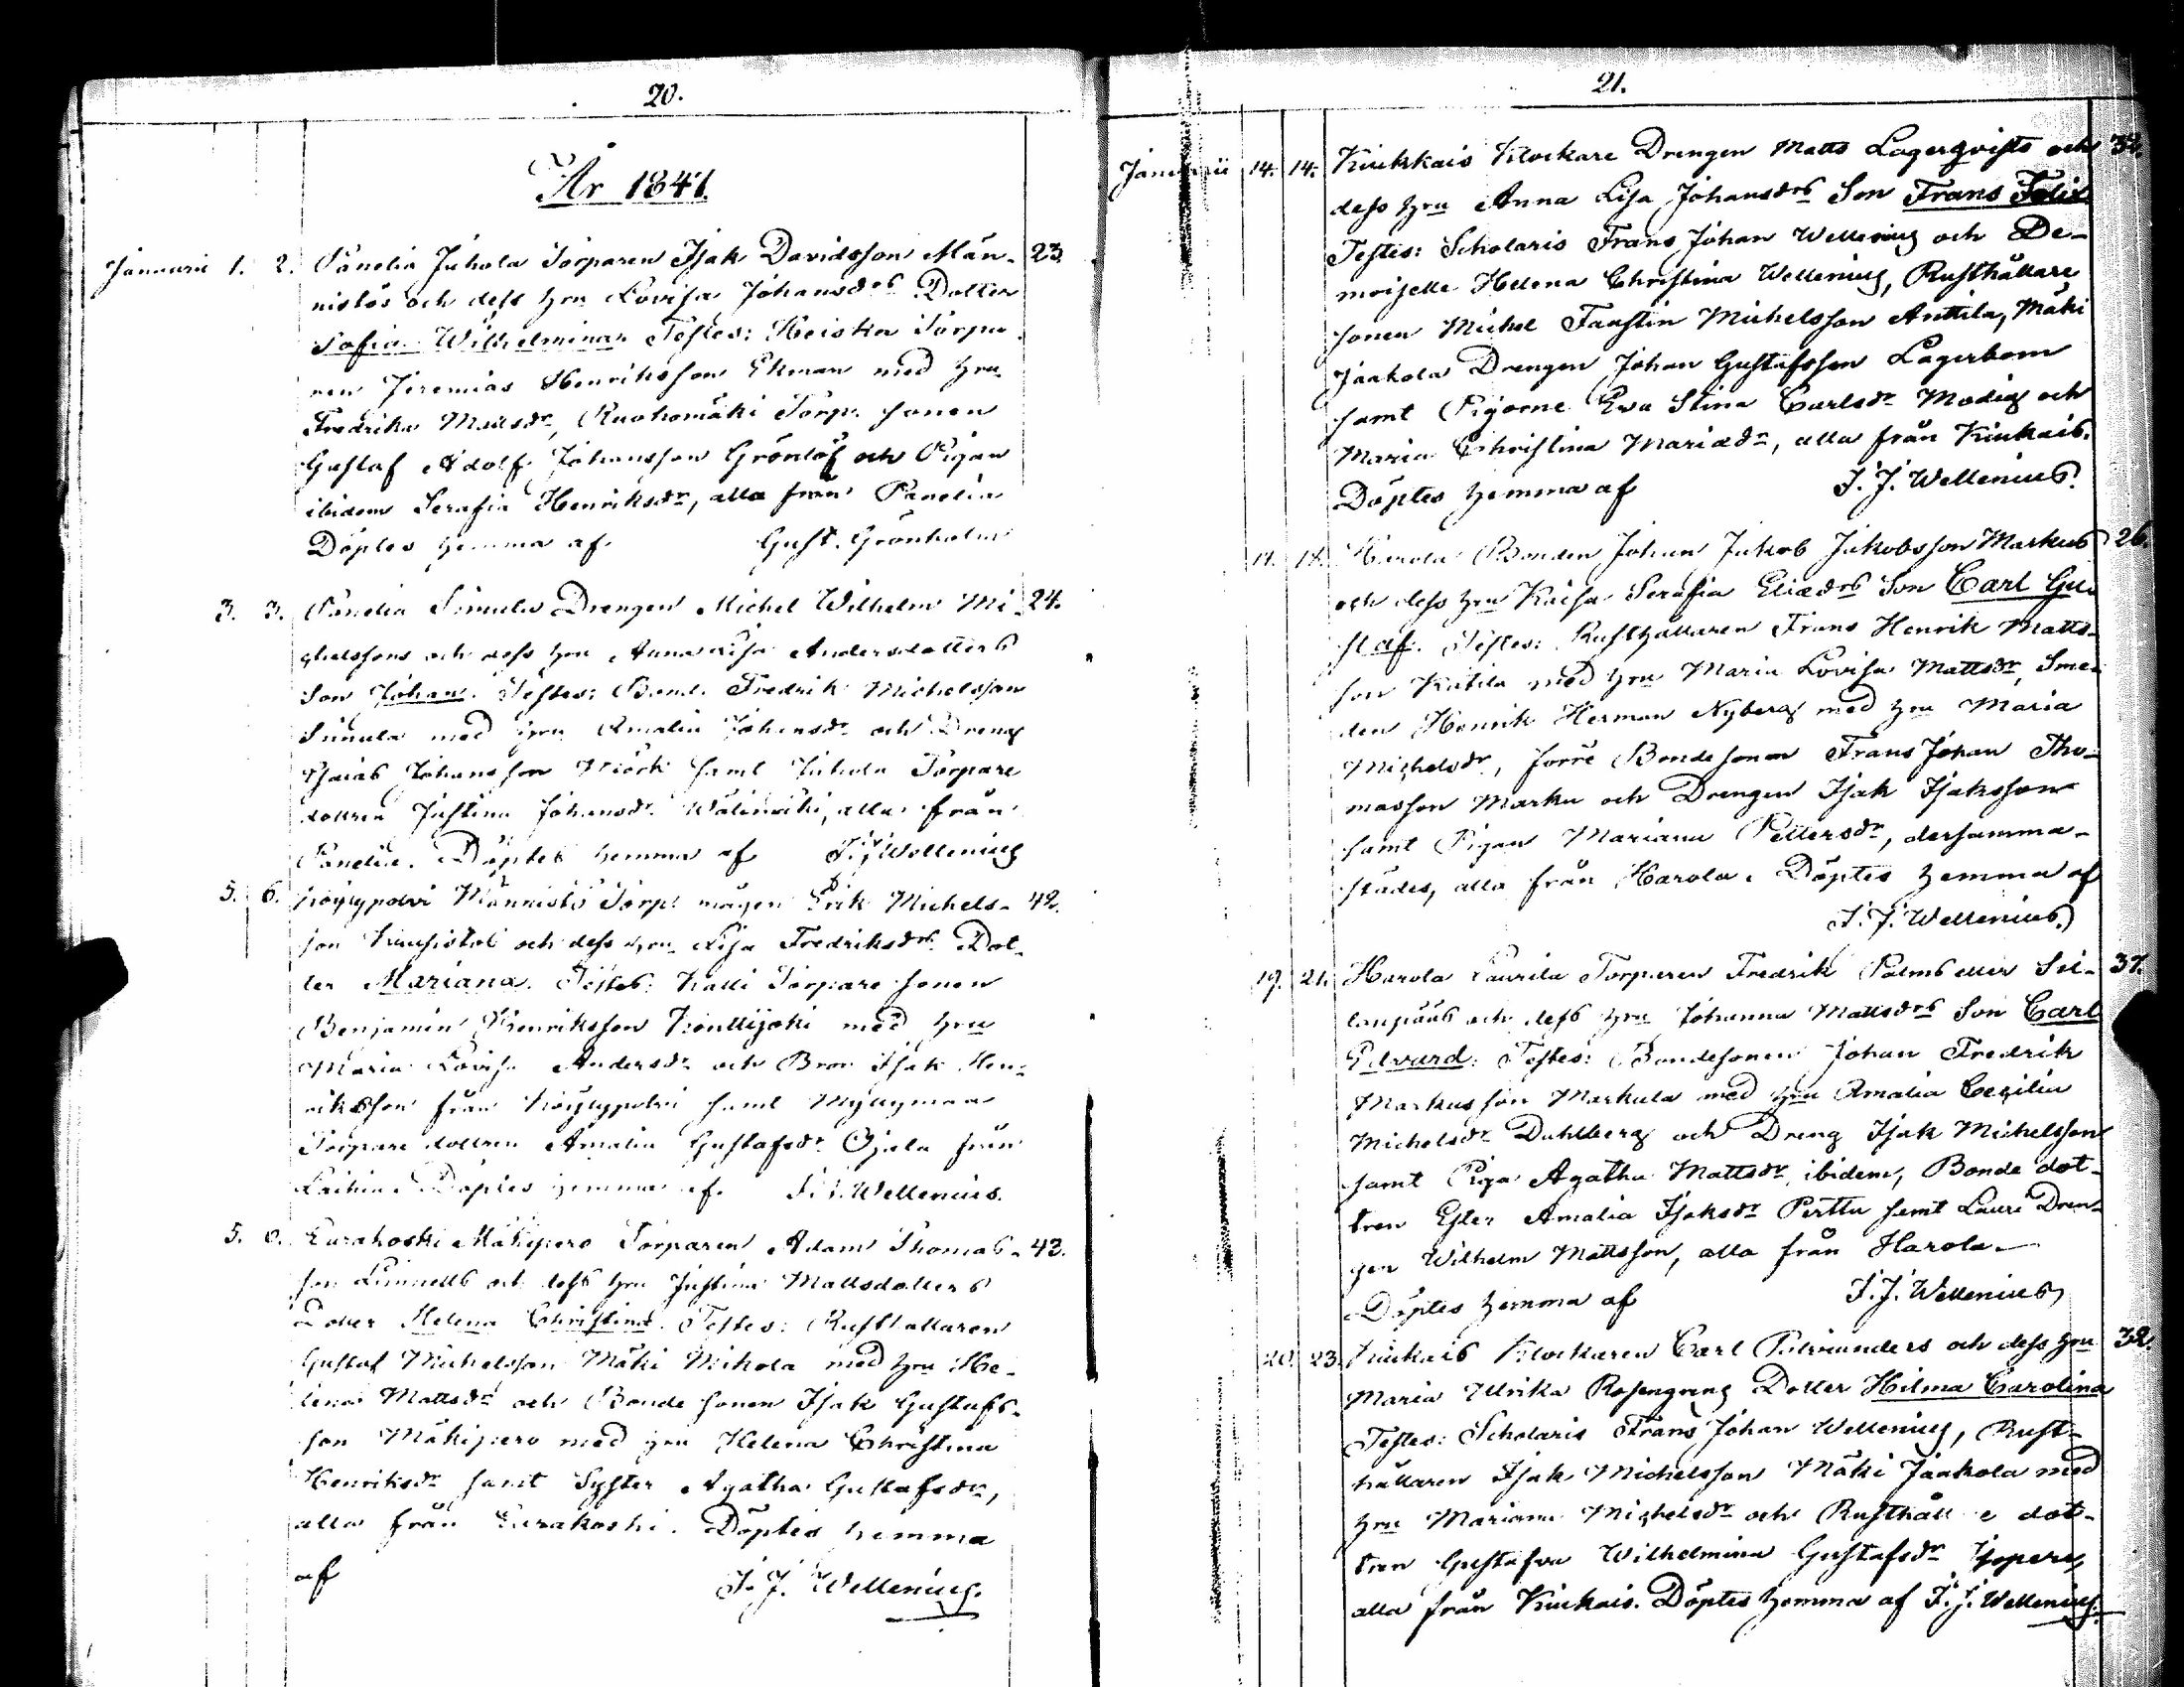 20.
År 1841.
Januarii 1. 2. Panelia Juhola Torparen Isak Davidsson Män- 23.
nistös och dess hru Lovisa Johansdrs Dotter
Sofia Wilhelmina. Testes: Heiska Torpa-
ren Jeremias Henriksson Ekman med hru
Fredrika Mattsdr, Ruohomäki Torp. sonen
Gustaf Adolf Johansson Grönlöf och Pigan
ibidem Serafia Henriksdr, alla från Panelia
Döptes hemma af Gust. Grönholm
3. 3. Panelia Simula Drengen Michel Wilhelm Mi- 24.
chelssons och dess hru Anna Lisa Andersdotters
Son Johan. Testes: Bond. Fredrik Michelsson
Simula med hru Amalia Johansdr och Dreng
Esaias Johansson samt Juhola Torpare
dottren Justina Johansdr Wälimäki, alla från
Panelia. Döptes hemma af F. J. Wellenius
5. 6. Köylypolvi Männistö Torp. mågen Erik Michels- 42.
son och dess hru Lisa Fredriksdrs Dot-
ter Mariana. Testes: Kalli Torpare sonen
Benjamin Henriksson Konttijoki med hru
Maria Lovisa Andersdr och Bror Isak Hen-
riksson från Köylypolvi samt Myllymaa
Torpare dottren Amalia Gustafsdr Ojala från
Laihia. Döptes hemma af F. J. Wellenius.
5. 6. Eurakoski Mäkipero Torparen Adam Thomas- 43.
son Linnells och dess hru Justina Mattsdotters
Dotter Helena Christina. Testes: Rusthållaren
Gustaf Michelsson Mäki Mikola med hru He-
lena Mattsdr och Bonde sonen Isak Gustafs-
son Mäkipero med hru Helena Christina
Henriksdr samt Syster Agatha Gustafsdr,
alla från Eurakoski. Döptes hemma
af F. J. Wellenius.
21.
Januarii 14. 14. Kiukkais Klockare Drengen Matts Lagerqvists och 32.
dess hru Anna Lisa Johansdrs Son Frans Felix
Testes: Scholaris Frans Johan Wellenius och De-
moiselle Helena Christina Wellenius, Rusthållare
sonen Michel Faustin Michelsson Anttila, Mäki
Jaakola Drengen Johan Gustafsson Lagerbom
samt Pigorne Eva Stina Carlsdr Modig och
Maria Christina Mariædr, alla från Kiukais.
Döptes hemma af F. J. Wellenius.
17. 18. Harola Bonden Johan Jakob Jakobsson Markus 26.
och dess hru Kaisa Serafia Eliædrs Son Carl Gu-
staf. Testes: Rusthållaren Frans Henrik Matts-
son Katila med hru Maria Lovisa Mattsdr, Sme-
den Henrik Herman Nyberg med hru Maria
Michelsdr, förre Bondesonen Frans Johan Tho-
masson Marku och Drengen Isak Isaksson
samt Pigan Mariana Pettersdr, dersamma-
städes, alla från Harola. Döptes hemma af
F. J. Wellenius.
19. 21. Harola Laurila Torparen Fredrik Palms eller Sii- 37.
lanpääs och dess hru Johanna Mattsdrs Son Carl
Edvard. Testes: Bondesonen Johan Fredrik
Markusson Markula med hru Amalia Cecilia
Michelsdr Dahlberg och Dreng Isak Michelsson
samt Piga Agatha Mattsdr ibidem, Bonde dot-
tren Ester Amalia Isaksdr Perttu samt Lauri Dren-
gen Wilhelm Mattsson, alla från Harola.
Döptes hemma af F. J. Wellenius
20. 23. Kiukais Klockaren Carl Palvianders och dess hru 32.
Maria Ulrika Rosengrens Dotter Hilma Carolina
Testes: Scholaris Frans Johan Wellenius, Rust-
hållaren Isak Michelsson Mäki Jaakola med
hru Mariana Michelsdr och Rusthåll e dot-
tren Gustafva Wilhelmina Gustafsdr
alla från Kiukais. Döptes hemma af F. J. Wellenius.